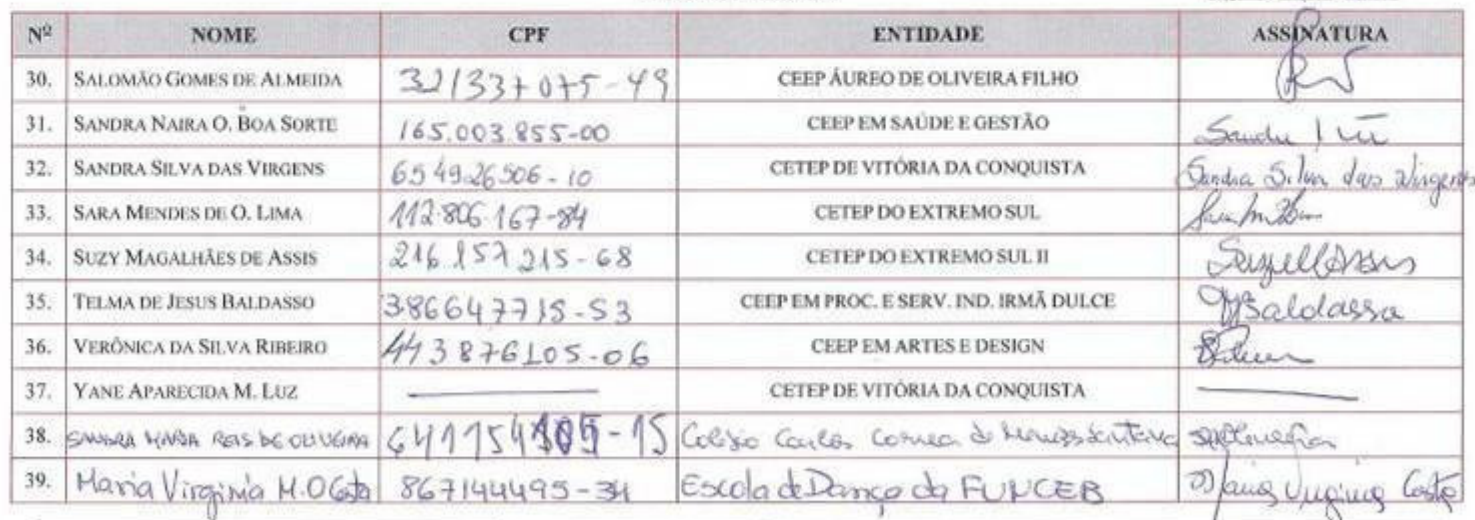 Nº NOME CPF ENTIDADE ASSINATURA
30. SALOMÃO GOMES DE ALMEIDA 321337075-49 CEEP ÁUREO DE OLIVEIRA FILHO
31. SANDRA NAIRA O. BOA SORTE 165.003.855-00 CEEP EM SAÚDE E GESTÃO Sandra
32. SANDRA SILVA DAS VIRGENS 654926506-10 CETEP DE VITÓRIA DA CONQUISTA Sandra Silva das Virgens
33. SARA MENDES DE O. LIMA 112.806.167-84 CETEP DO EXTREMO SUL
34. SUZY MAGALHÃES DE ASSIS 216.157.215-68 CETEP DO EXTREMO SUL II
35. TELMA DE JESUS BALDASSO 386647715-53 CEEP EM PROC. E SERV. IND. IRMÃ DULCE Baldasso
36. VERÔNICA DA SILVA RIBEIRO 443876105-06 CEEP EM ARTES E DESIGN
37. YANE APARECIDA M. LUZ CETEP DE VITÓRIA DA CONQUISTA
38. SANDRA MARIA REIS DE OLIVEIRA Colégio Carlos Correa de Menezes Santana
39. Maria Virginia M. O Costa 867144495-34 Escola de Dança da FUNCEB Maria Virginia Costa